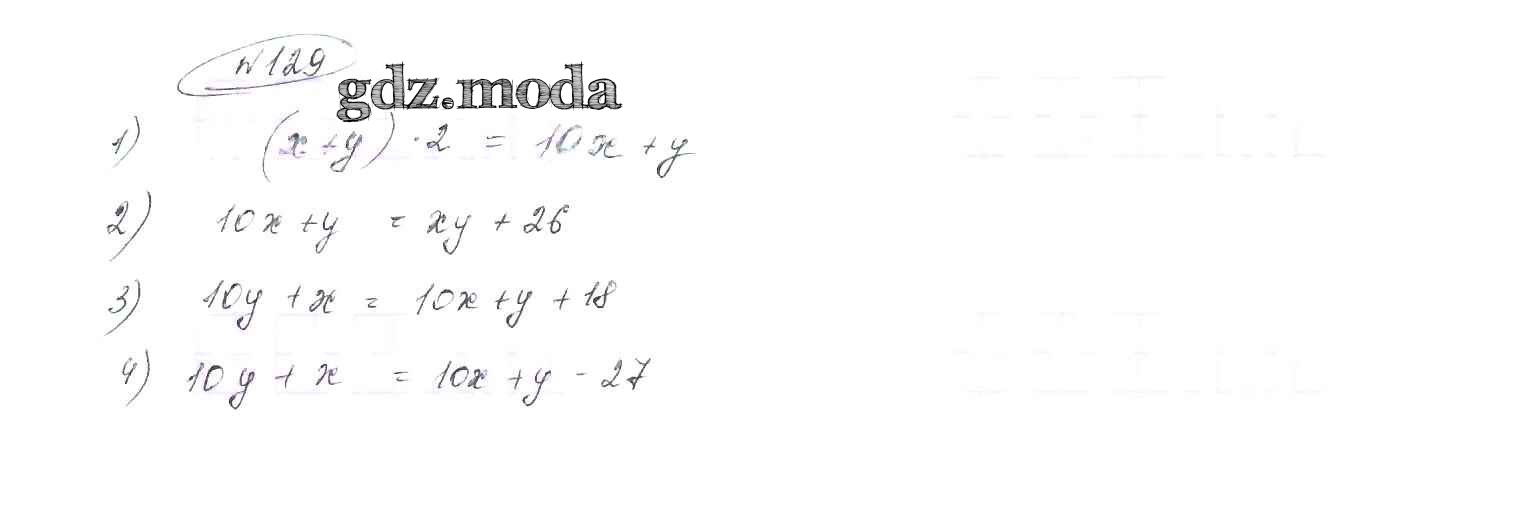 №129
gdz.moda
1) (x+y)·2 = 10x+y
2) 10x+y = xy+26
3) 10y+x = 10x+y+18
4) 10y+x = 10x+y-27